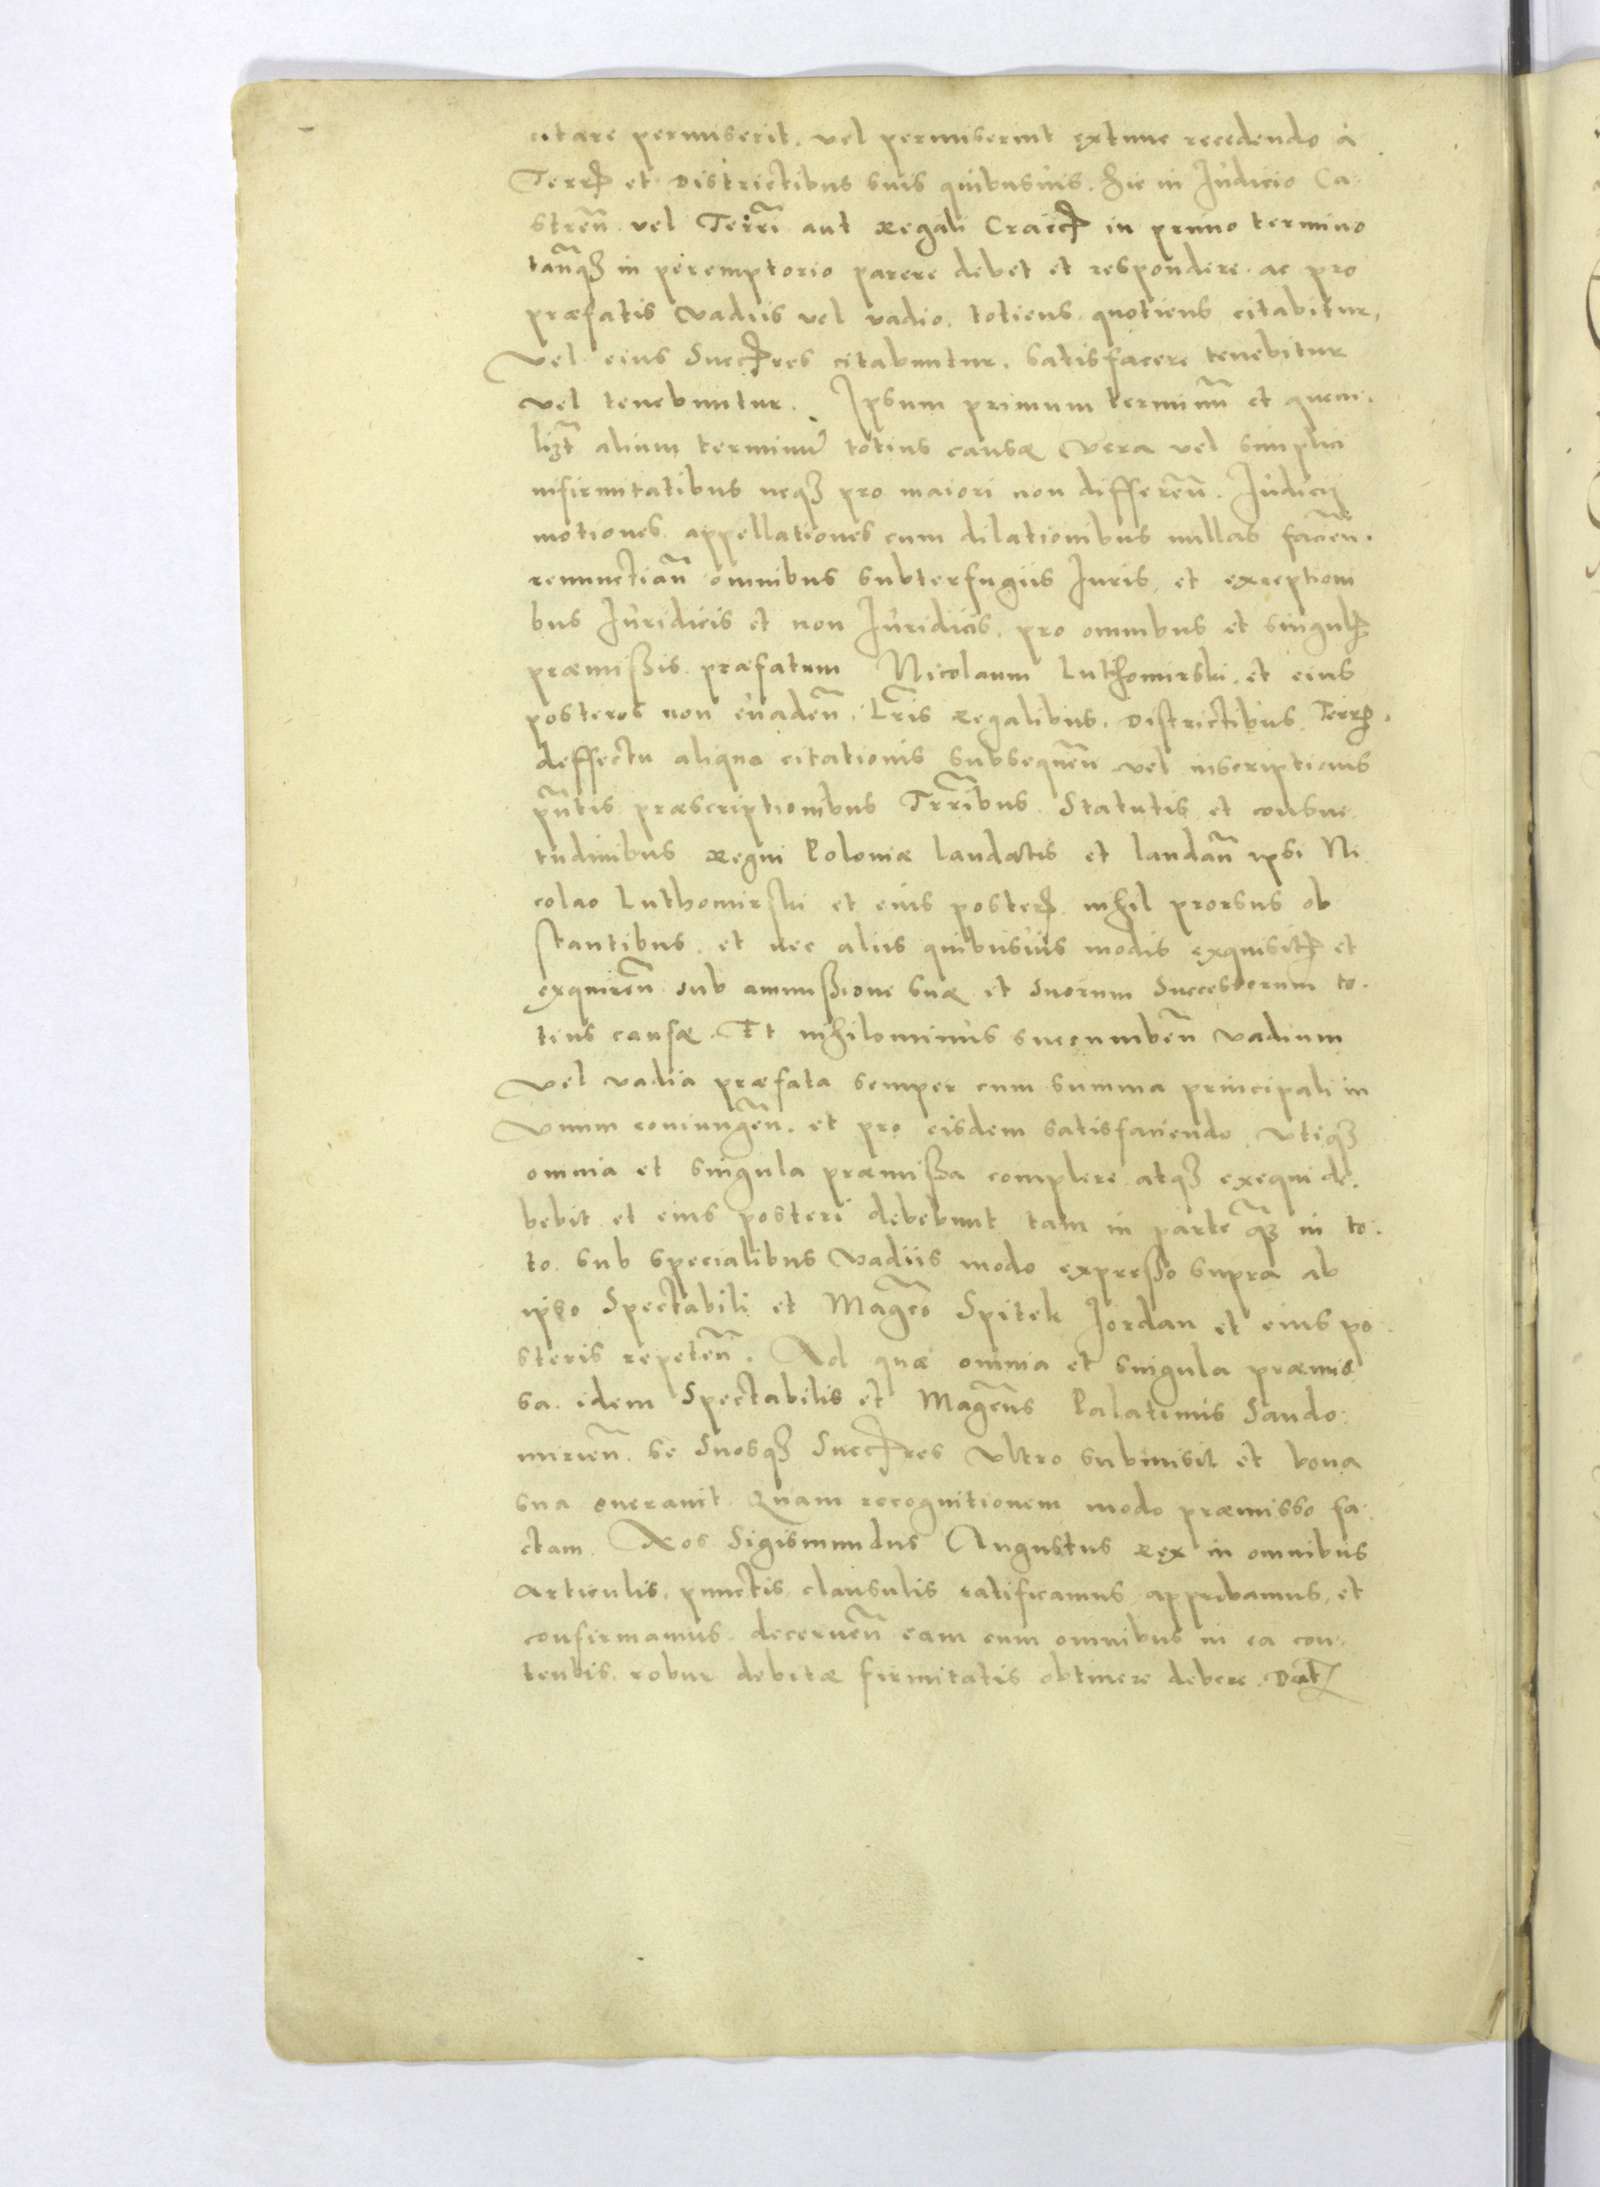 citare permiserit, vel permiserint extunc recedendo à
Terrꝭ et Districtibus suis quibusuis. hic in Iudicio Ca-
streñ vel Terri aut Regali Craicꝭ in primo termino
tanqꝫ in peremptorio parere debet et respondere. ac pro
præfatis vadiis vel vadio. totiens quotiens citabitur,
vel eius Succꝭres citabuntur. satisfacere tenebitur
vel tenebuntur. Ipsum primum terminũ et quem-
lizt alium terminũ totius causæ vera vel simplici
infirmitatibus neqꝫ pro maiori non differeñ. Iudicij
motiones appellationes cum dilationibus nullas facieñ.
renunctiañ omnibus subterfugiis Iuris, et exception
bus Iuridicis et non Iuridicis, pro omnibus et singulꝭ
præmissis præfatum Nicolaum Luthomirski. et eius
posteros non euadeñ. Lr̃is Regalibus. Districtibus Terrꝭ.
deffectu aliquo citationis subsequeñ vel inscriptionis
pñtis præscriptionibus Trr̃ibus Statutis et consue
tudinibus Regni Poloniæ laudatis et laudañ ipsi Ni
colao Luthomirski et eius posterꝭ nihil prorsus ob
stantibus. et nec aliis quibusuis modis exquisitꝭ et
exquireñ sub ammissione suæ et Suorum Successorum to-
tius causæ. Et nihilominus succumbeñ vadium
vel vadia præfata semper cum summa principali in
vnum coniungeñ. et pro eisdem satisfaciendo vtiqꝫ
omnia et singula præmissa complere atqꝫ exequi de-
bebit et eius posteri debebunt tam in parte qꝫ̃ in to-
to sub specialibus vadiis modo expresso supra ab
ipso Spectabili et Magco Spitek Iordan et eius po
steris repeteñ. Ad quæ omnia et singula præmis
sa. idem Spectabilis et Magcus Palatinus Sando-
mirieñ. se suosqꝫ Succꝭres vltro submisit et bona
sua onerauit. Quam recognitionem modo præmisso fa-
ctam. Nos Sigismundus Augustus Rex in omnibus
articulis, punctis, clausulis ratificamus, approbamus, et
confirmamus. decerneñ eam cum omnibus in ea con-
tentis, robur debitæ firmitatis obtinere debere. Dat